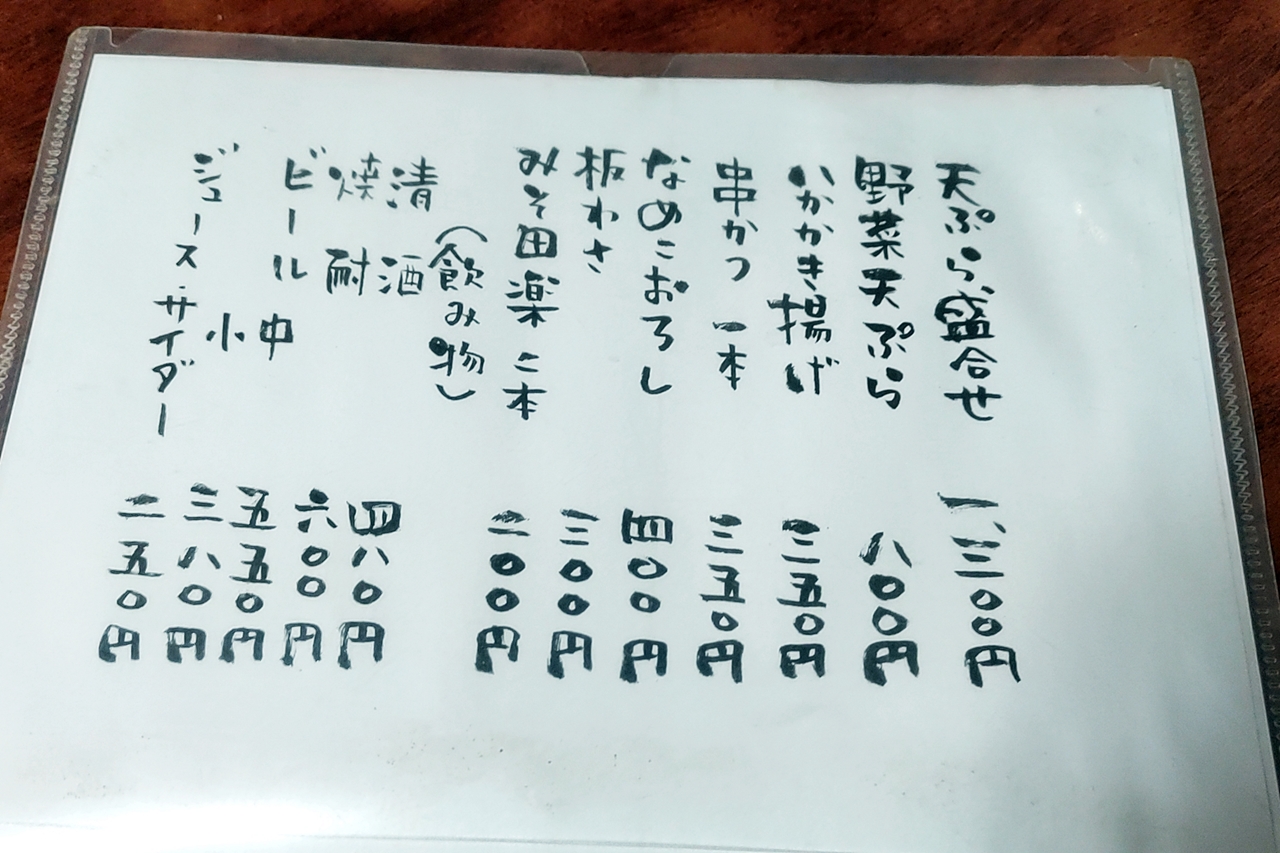 天ぷら盛合せ 一、三〇〇円
野菜天ぷら 八〇〇円
いかかき揚げ 三五〇円
串かつ 一本 三五〇円
なめこおろし 四〇〇円
板わさ 三〇〇円
みそ田楽 二本 二〇〇円
(飲み物)
清酒 四八〇円
焼耐 六〇〇円
ビール 中 五五〇円
小 三八〇円
ジュース・サイダー 二五〇円